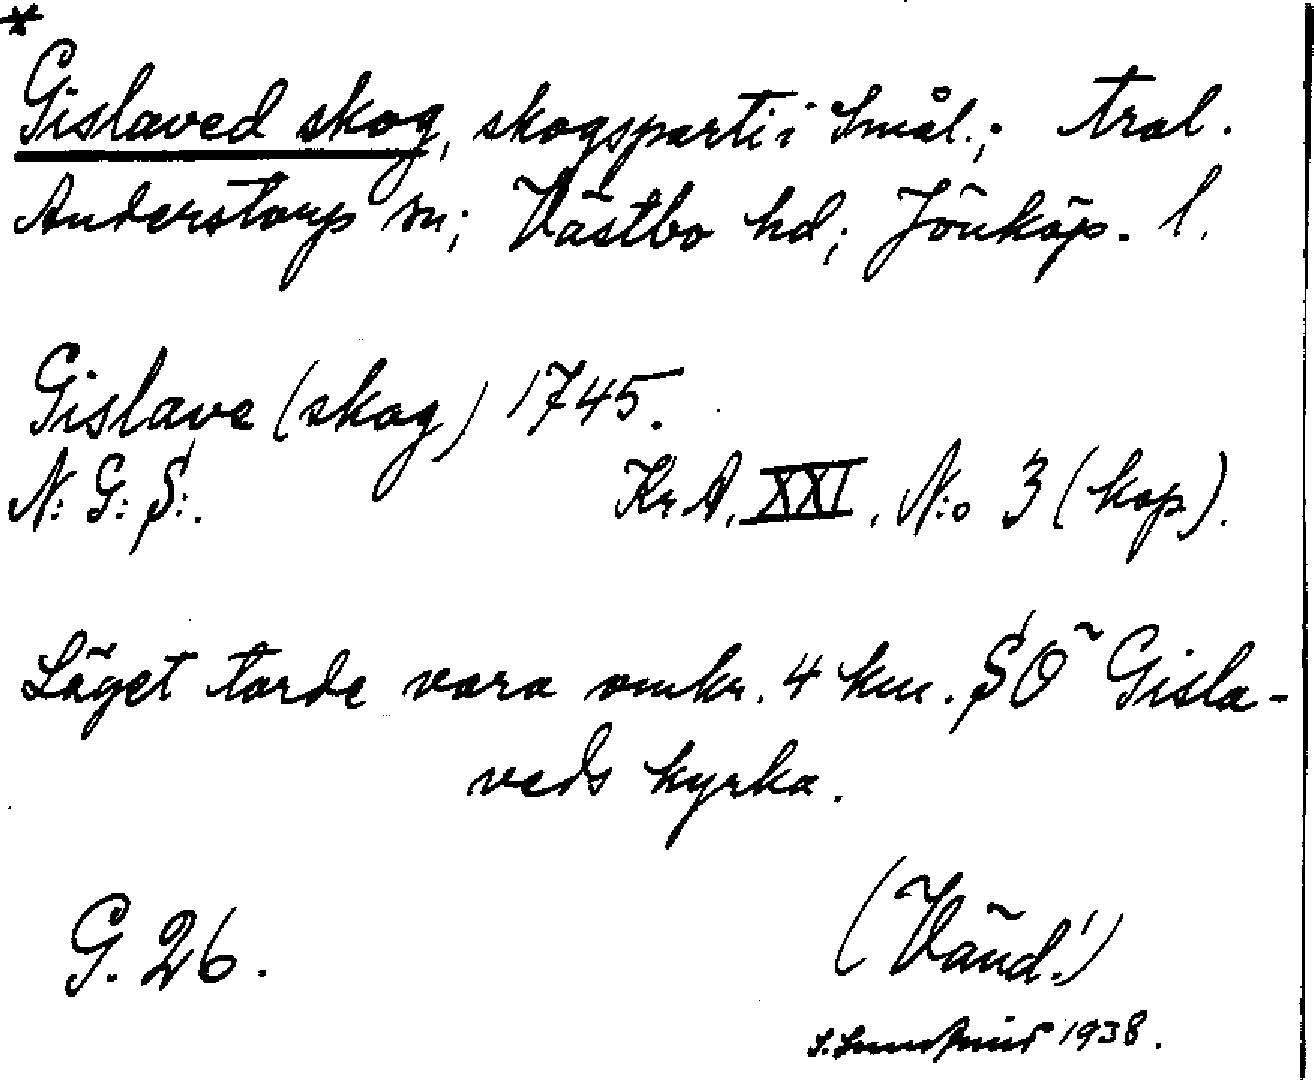 *
Gislaved skog, skogsparti i Smål.; trol.
Anderstorp sn; Västbo hd; Jönköp. l.
Gislave (skog) 1745.
N: G: S:.
Kr A. XXI, N:o 3 (kop).
Läget torde vara omkr. 4 km. SÖ Gisla-
veds kyrka.
G. 26.
(Vänd!)
1938.